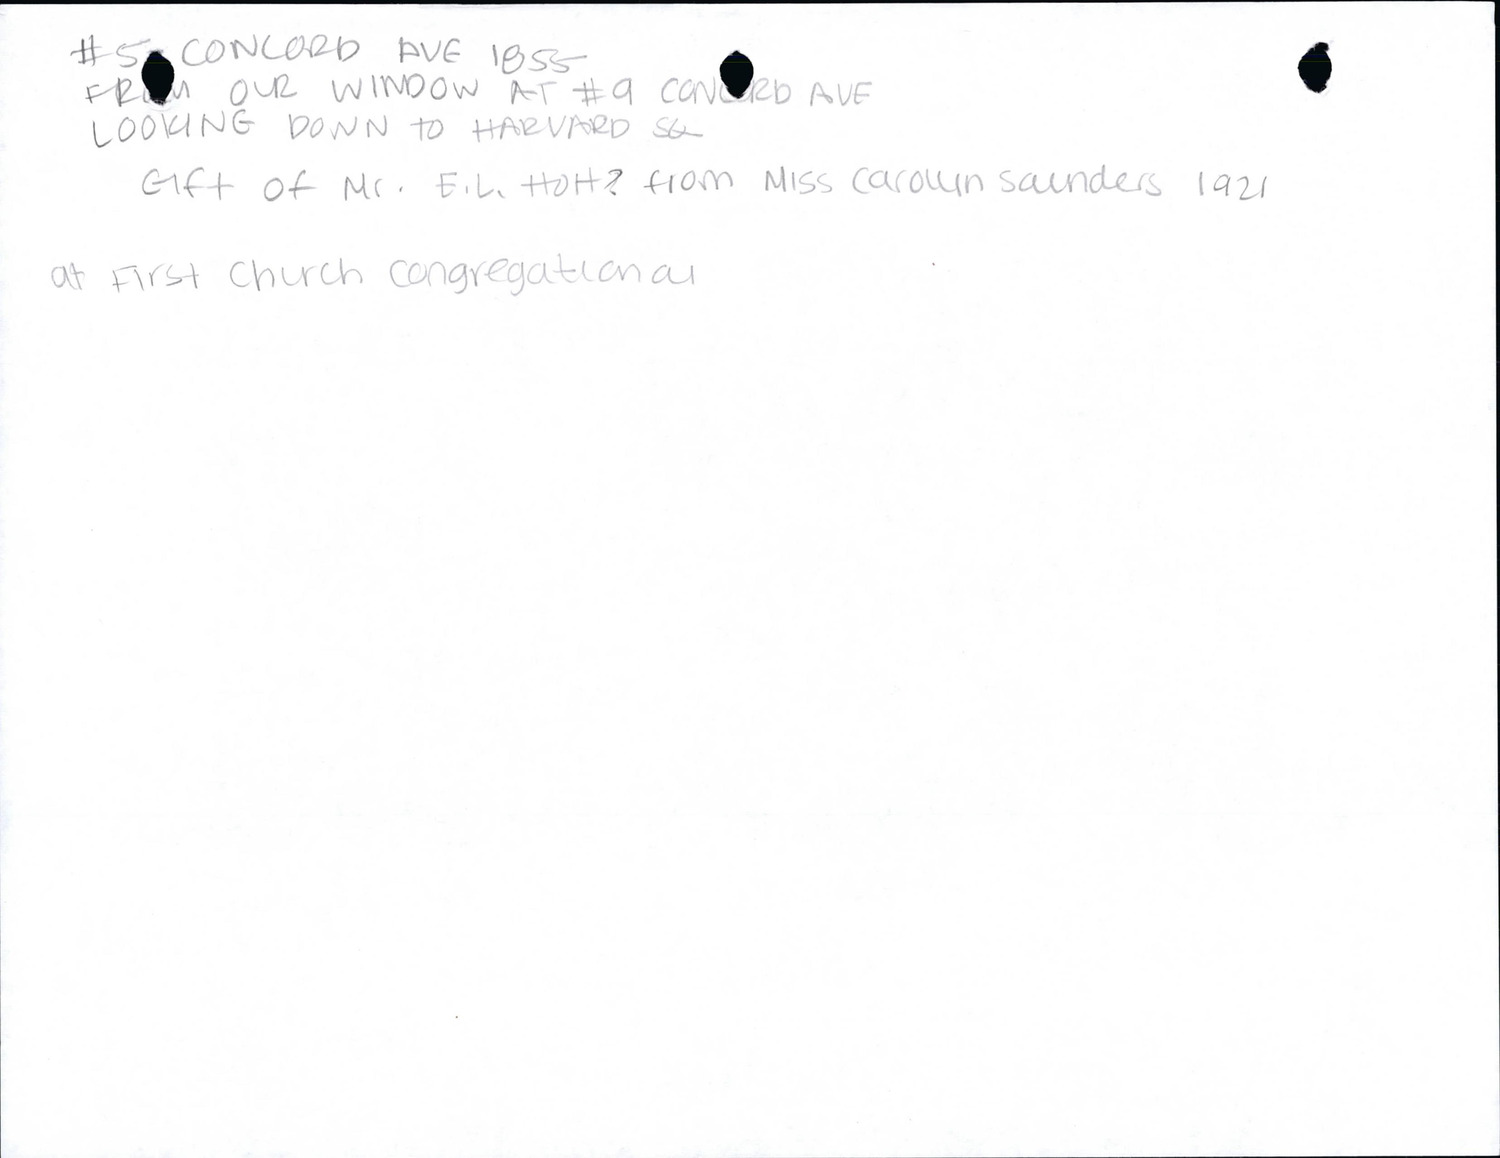 #5 CONCORD AVE 1855
FROM OUR WINDOW AT #9 CONCORD AVE
LOOKING DOWN TO HARVARD SQ
Gift of Mr. E.L. HOH? from Miss Carolyn Saunders 1921
at First Church Congregational